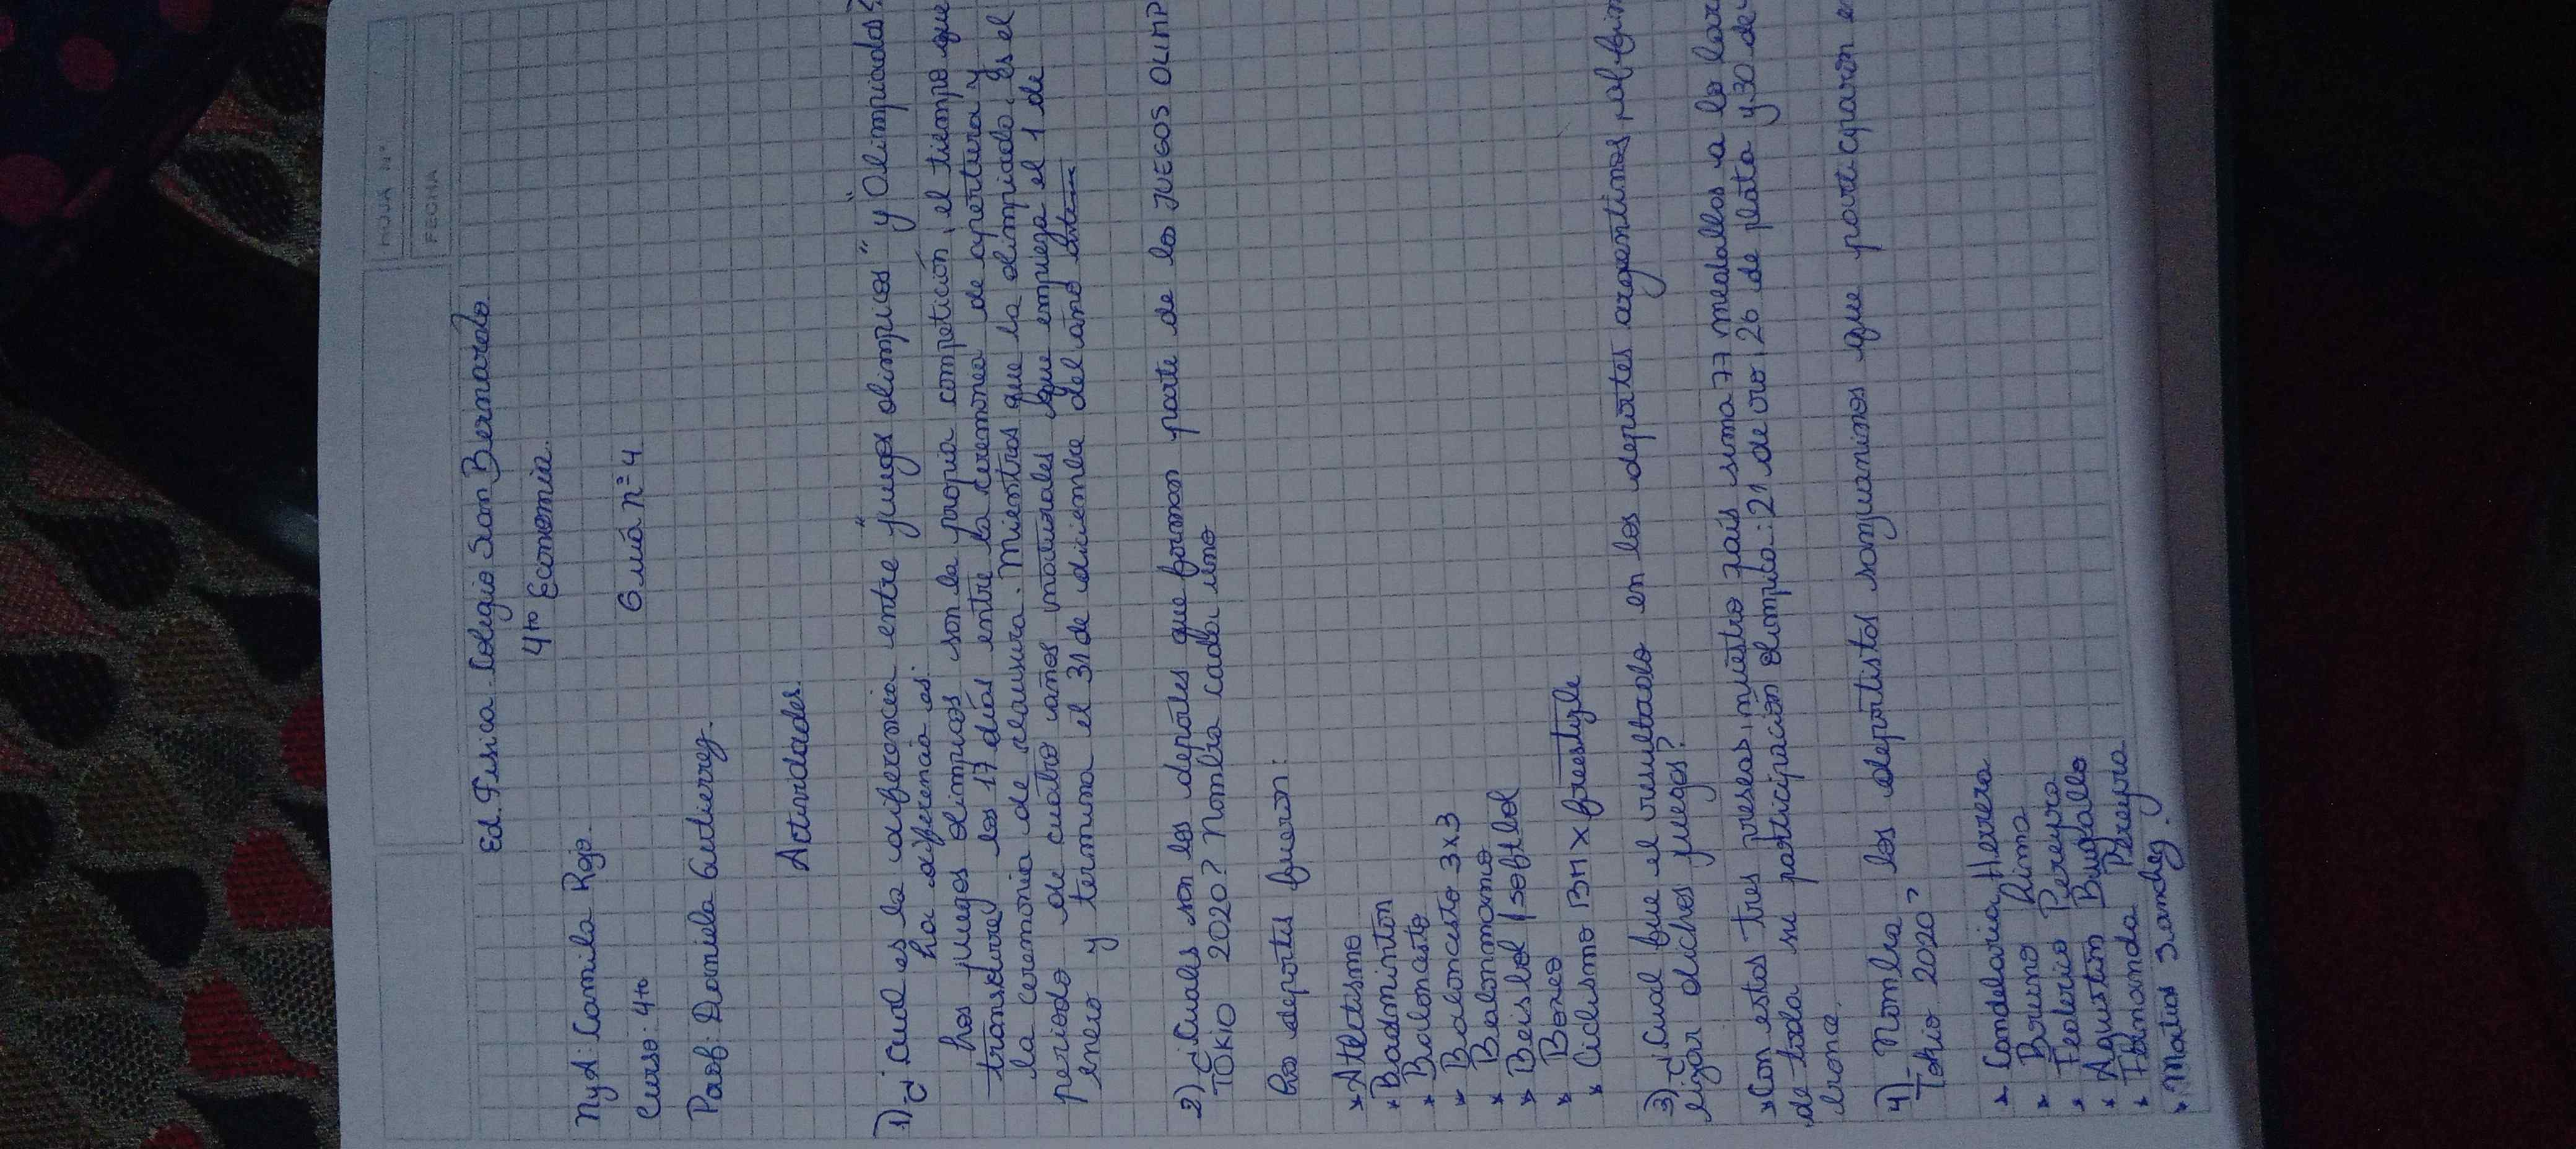 HOJA Nº
FECHA
Ed. Fisica Colegio San Bernardo
4to Economia
Guia nº 4
NyA: Camila Rojo.
Curso: 4to
Prof: Daniela Gutierrez.
Actividades.
1) ¿Cual es la diferencia entre "juegos olimpicos" y "Olimpiadas?
La diferencia es:
Los juegos olimpicos son la propia competición, el tiempo que
transcurre los 17 días entre la ceremonia de apertura y
la ceremonia de clausura. Mientras que la olimpiada es el
periodo de cuatro años naturales que empieza el 1 de
enero y termina el 31 de diciembre del año
2) ¿Cuales son los deportes que forman parte de los JUEGOS OLIMP
TOKIO 2020? Nombra cada uno
Los deportes fueron:
* Atletismo
* Badminton
* Baloncesto
* Baloncesto 3x3
* Balonmano
* Beisbol / sofbol
* Boxeo
* Ciclismo BMX freestyle
3) ¿Cual fue el resultado en los deportes argentinos
dichos juegos?
* Con estas tres preseas, nuestro país suma 77 medallas a lo lar
de toda su participación olimpica: 21 de oro, 26 de plata y 30 de
bronce.
4) Nombra los deportistas sanjuaninos que participaron e
Tokio 2020?
* Candelaria Herrera
* Bruno Lima
* Federico Pereyra
* Agustin Bugallo
* Fernanda Pereyra
* Matias Sanchez.